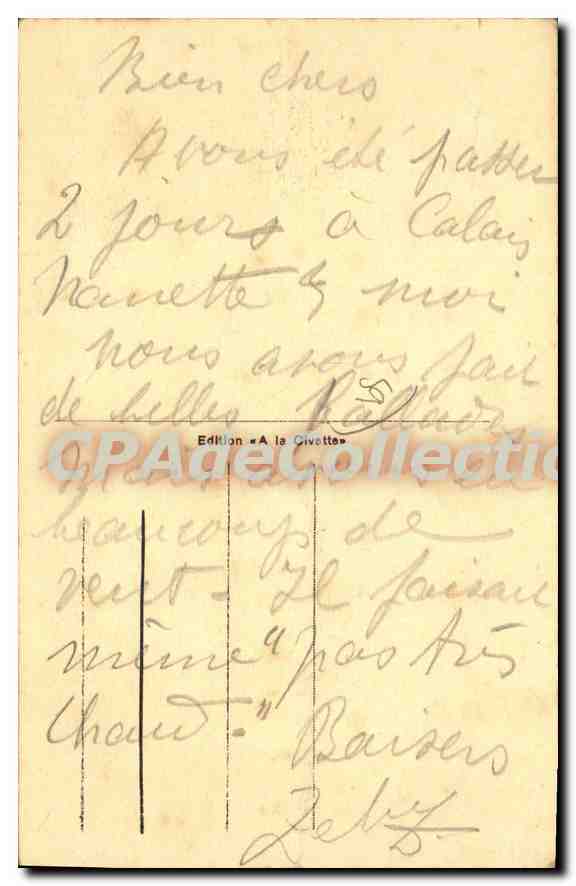 Bien chers
Avons été passer
2 jours à Calais
Nanette & moi
nous avons fait
de belles Ballades
59
Edition «A la Civette»
CPAdeCollection.co
beaucoup de
vent. Il faisait
même "pas très
chaud." Baisers